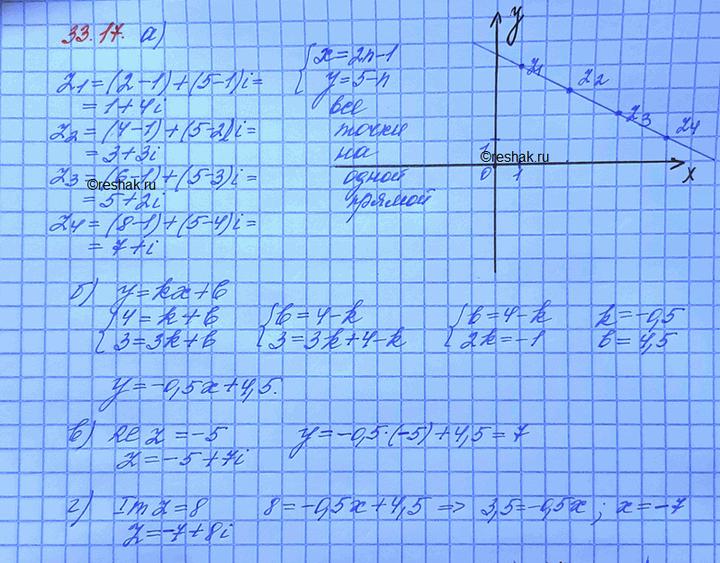 33.17. а)
z1 = (2-1)+(5-1)i =
= 1+4i
z2 = (4-1)+(5-2)i =
= 3+3i
z3 = (6-1)+(5-3)i =
= 5+2i
z4 = (8-1)+(5-4)i =
= 7+i
{x=2n-1
y=5-n
все
точки
на
одной
прямой
y
z1 z2 z3 z4
1
0 1 x
©reshak.ru
©reshak.ru
б) y=kx+b
{4=k+b {b=4-k {b=4-k k=-0,5
3=3k+b 3=3k+4-k 2k=-1 b=4,5
y=-0,5x+4,5.
в) Re z =-5 y=-0,5·(-5)+4,5=7
z=-5+7i
г) Im z=8 8=-0,5x+4,5 => 3,5=-0,5x; x=-7
z=-7+8i